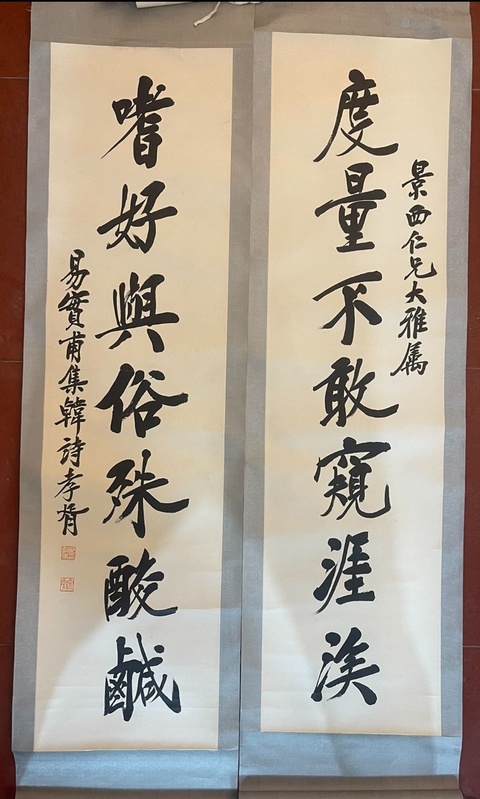 景西仁兄大雅属
度量不敢窺涯涘
嗜好與俗殊酸鹹
易實甫集韓詩孝胥